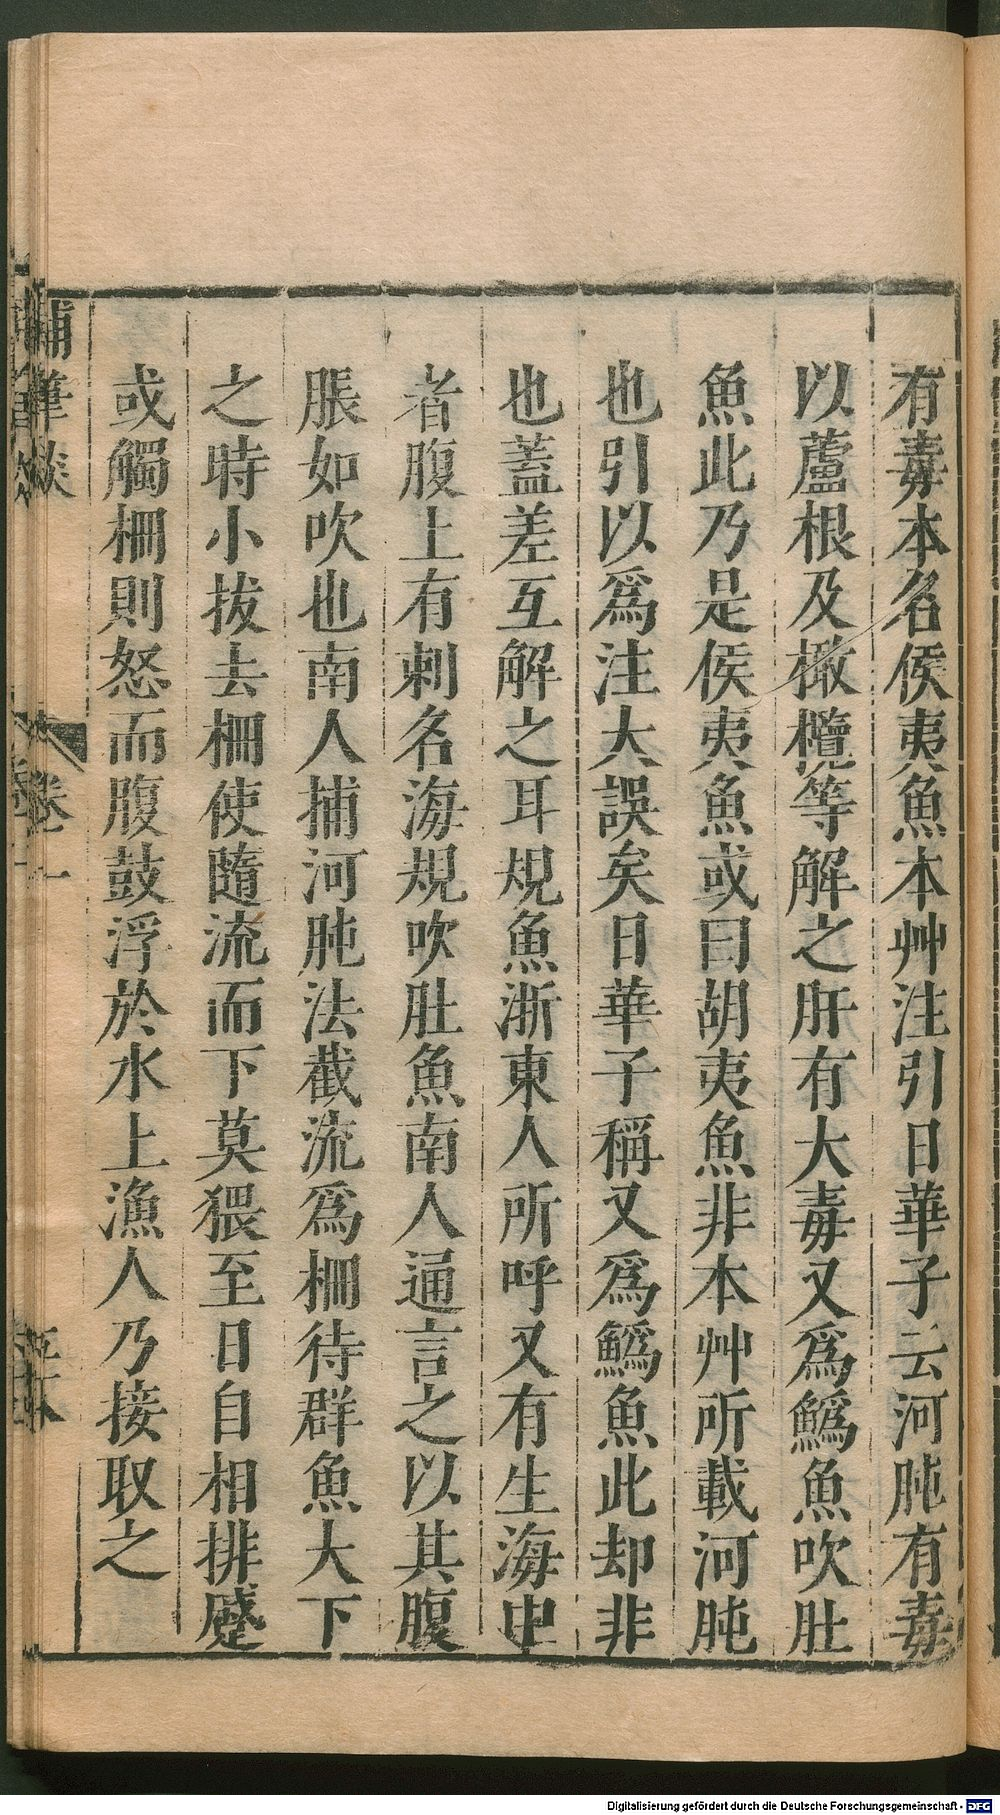 有毒本名侯夷魚本艸注引日華子云河肫有毒
以蘆根及橄欖等解之肝有大毒又爲鰞魚吹肚
魚此乃是侯夷魚或曰胡夷魚非本艸所載河肫
也引以爲注大誤矣日華子稱又爲鰞魚此却非
也蓋差互解之耳規魚浙東人所呼又有生海中
者腹上有刺名海規吹肚魚南人通言之以其腹
脹如吹也南人捕河肫法截流爲柵待群魚大下
之時小拔去柵使隨流而下莫猥至日自相排蹙
或觸柵則怒而腹鼓浮於水上漁人乃接取之
補筆談
卷一
Digitalisierung gefördert durch die Deutsche Forschungsgemeinschaft - DFG